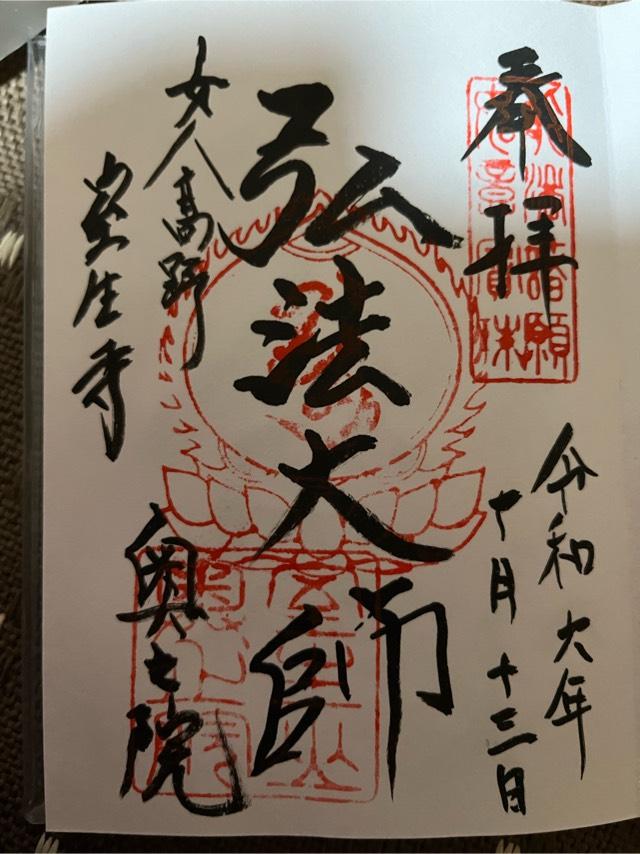 奉拝
令和六年
十月十三日
弘法大師
女人高野
室生寺
奥之院